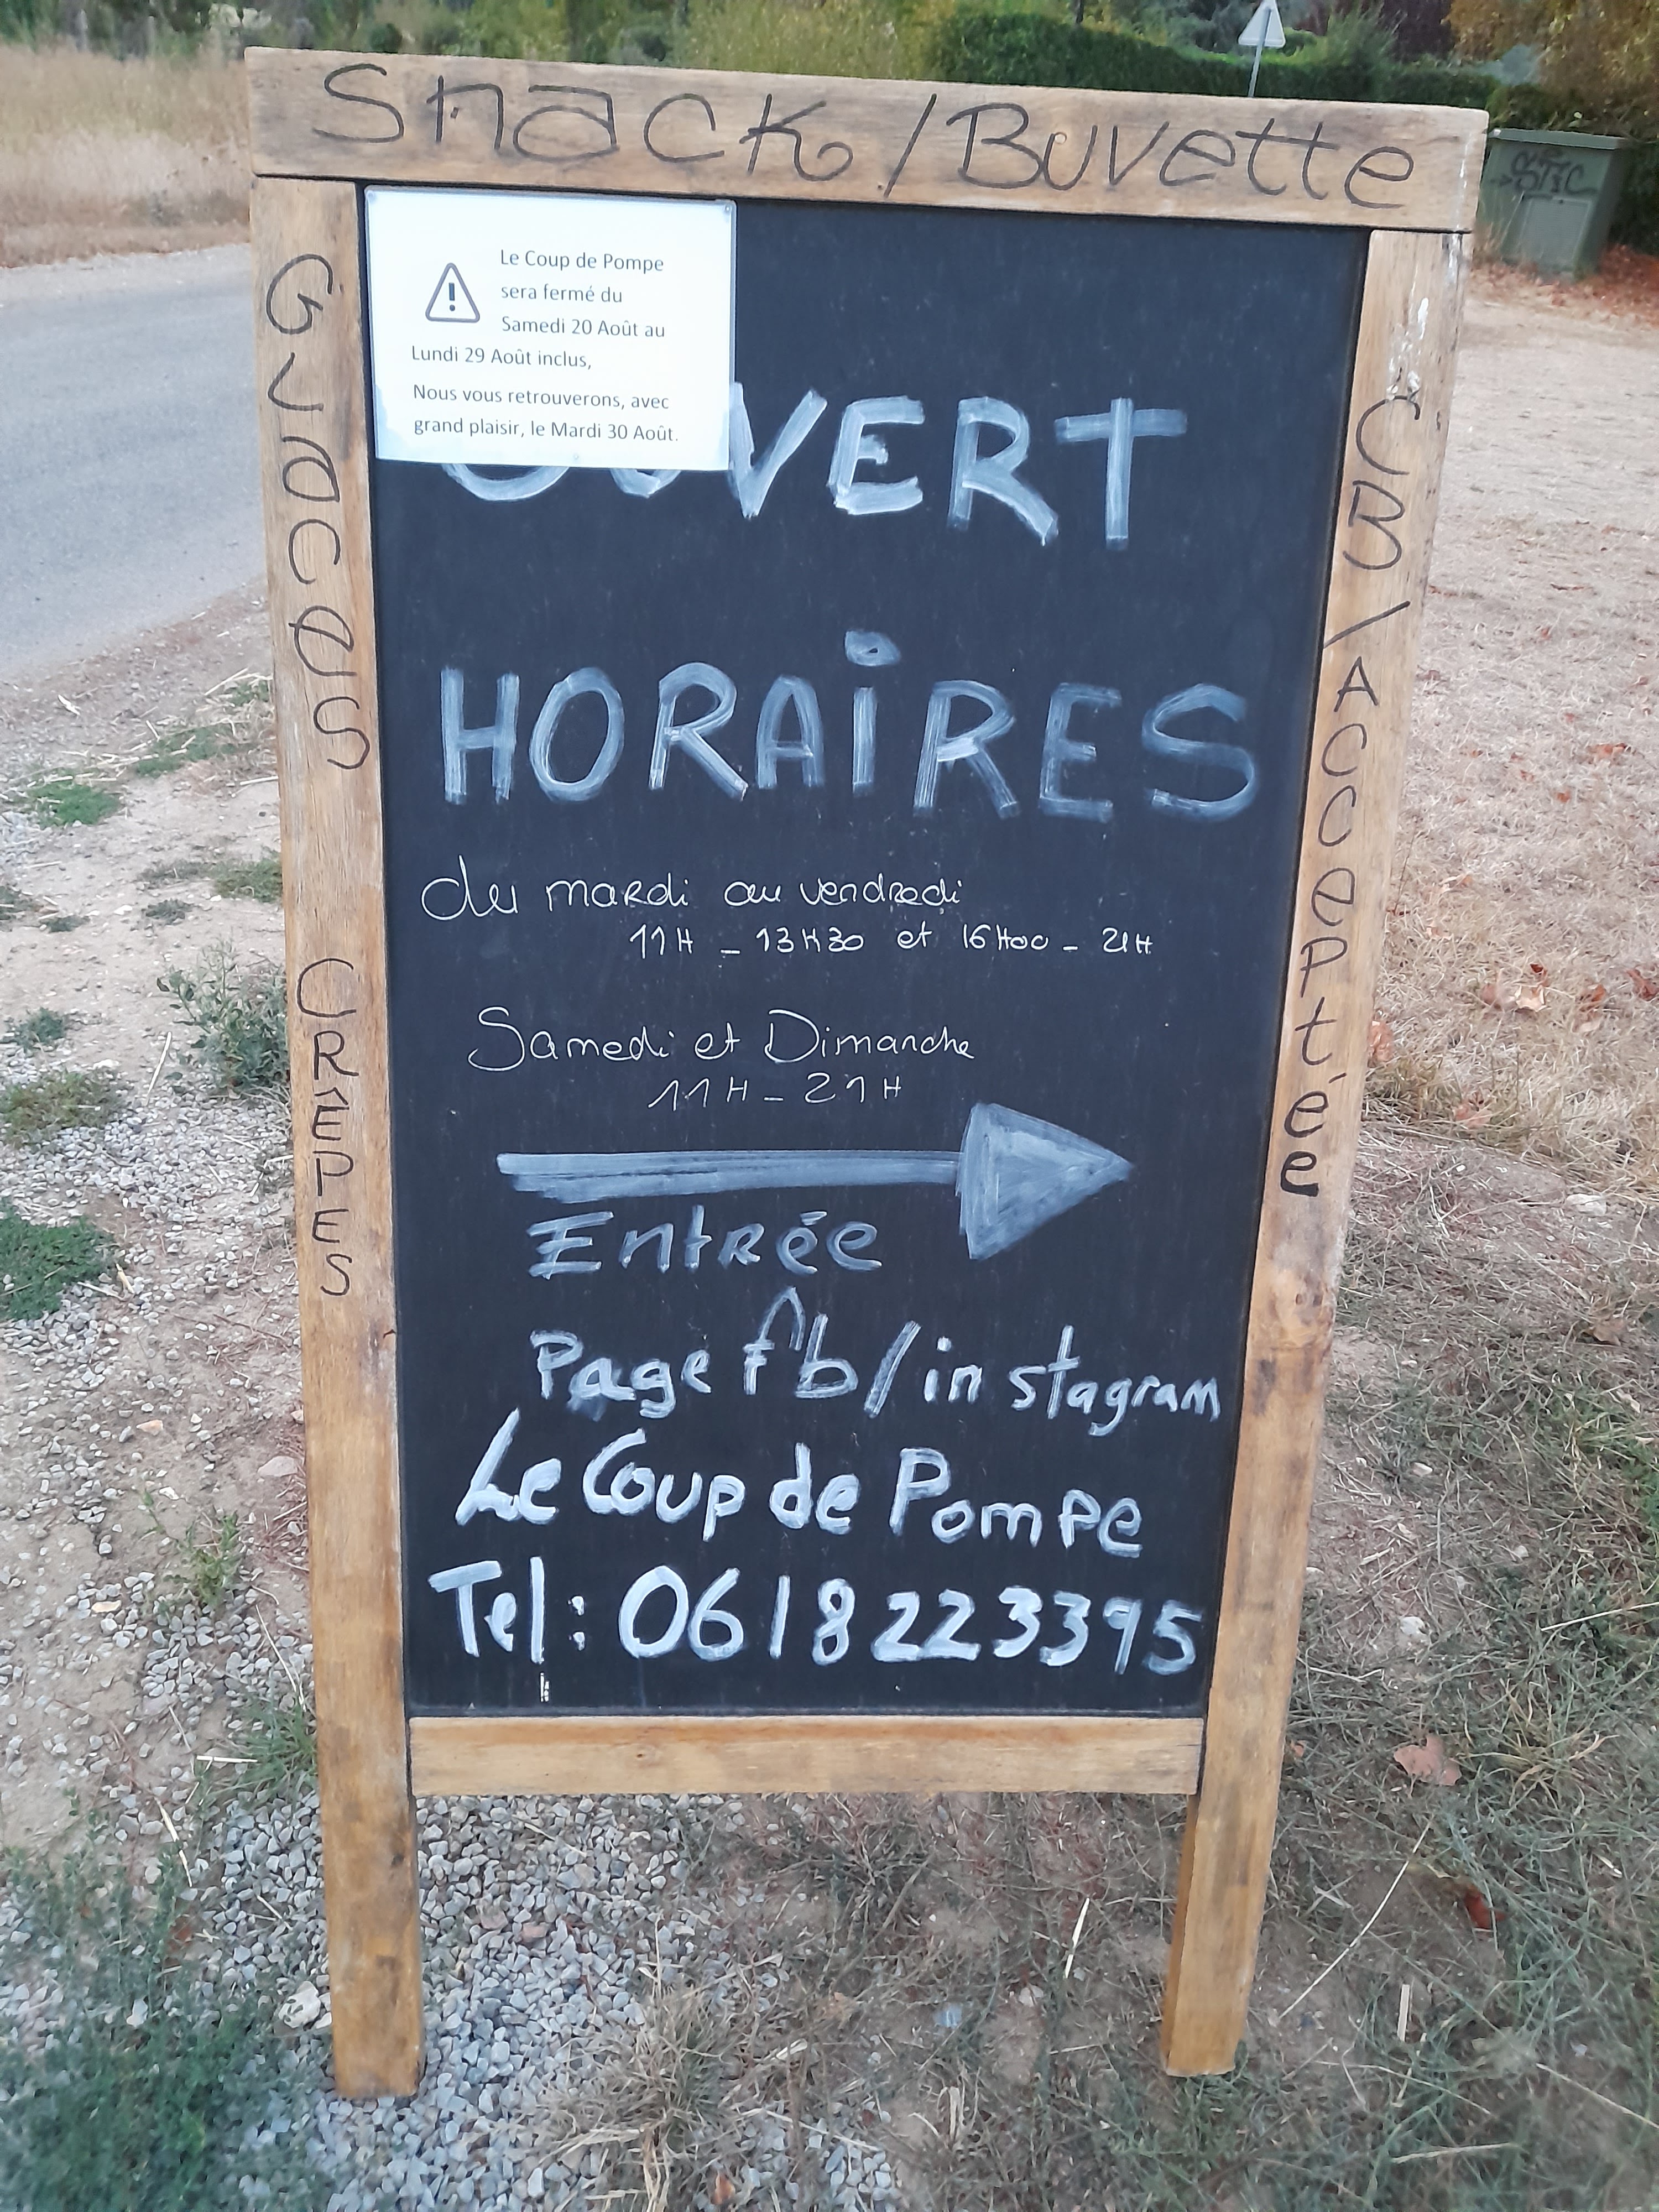 Snack / Buvette
Le Coup de Pompe
sera fermé du
Samedi 20 Août au
Lundi 29 Août inclus,
Nous vous retrouverons, avec
grand plaisir, le Mardi 30 Août.
OUVERT
HORAiRES
du mardi au vendredi
11H - 13H30 et 16H00 - 21H
Samedi et Dimanche
11H - 21H
Entrée
Page fb/instagram
Le Coup de Pompe
Tel : 0618223395
GLaces CRÊPES
CB / ACCePtée
STIC